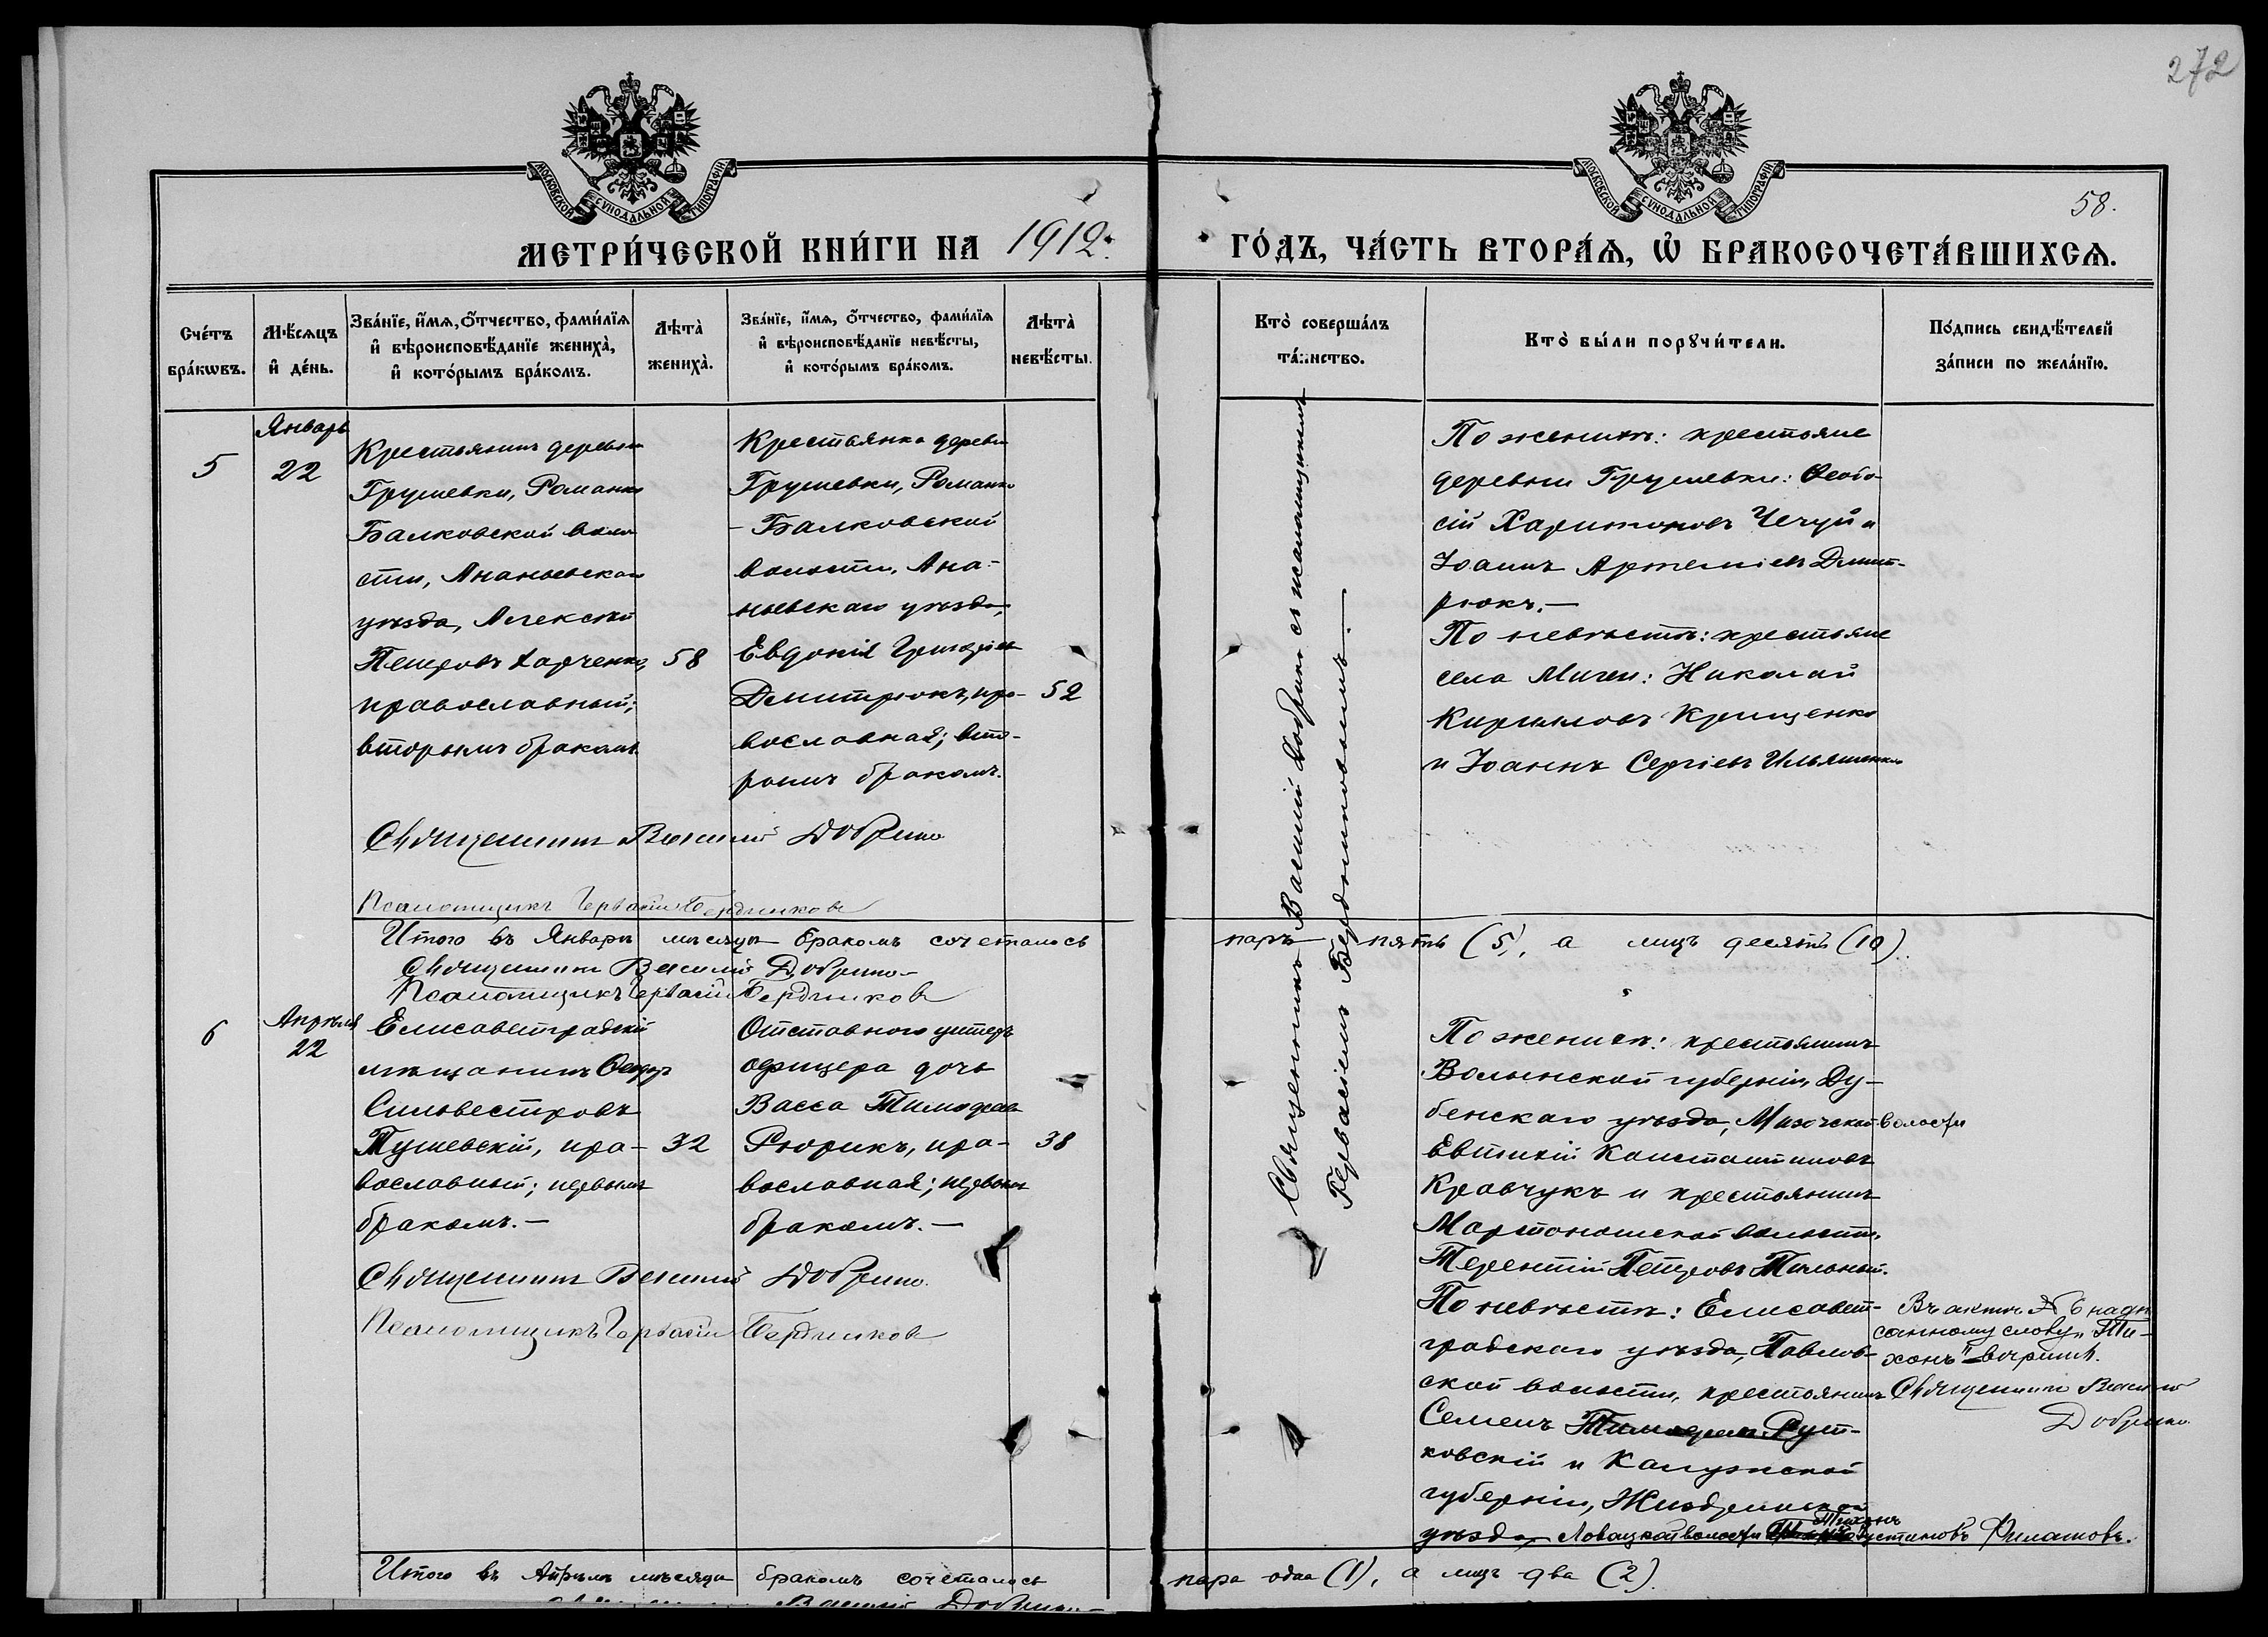 272
МОСКОВСКОЙ СУНОДАЛЬНОЙ ТИПОГРАФІИ
МОСКОВСКОЙ СУНОДАЛЬНОЙ ТИПОГРАФІИ
58.
МЕТРИ́ЧЕСКОЙ КНИ́ГИ НА 1912. ГО́ДЪ, ЧА́СТЬ ВТОРА́Ѧ, Ѡ҆ БРАКОСОЧЕТА́ВШИХСѦ.
Сче́тъ бра́кѡвъ.
Мѣ́сѧцъ и҆ де́нь.
Зва́нїе, и҆́мѧ, ѻ҆́тчество, фами́лїѧ и҆ вѣроисповѣ́данїе жениха̀, и҆ кото́рымъ бра́комъ.
Лѣта̀ жениха̀.
Зва́нїе, и҆́мѧ, ѻ҆́тчество, фами́лїѧ и҆ вѣроисповѣ́данїе невѣ́сты, и҆ кото́рымъ бра́комъ.
Лѣта̀ невѣ́сты.
Кто̀ соверша́лъ та́инство.
Кто̀ бы́ли порꙋчи́тели.
По́дпись свидѣ́телей за́писи по жела́нїю.
5
Январь
22
Крестьянинъ деревни
Грушевки, Романко
Балковской воло
сти, Ананьевскаго
уѣзда, Алексѣй
Петровъ Харченко,
православный;
вторымъ бракомъ
58
Крестьянка деревни
Грушевки, Романко
-Балковской
волости, Ана-
ньевскаго уѣзда,
Евдокія Григорьева
Дмитрюкъ, пра-
вославная; вто-
рымъ бракомъ.
52
Священникъ Василій Добрино съ псаломщикомъ
Гервасіемъ Бердниковымъ.—
По женихѣ: крестьяне
деревни Грушевки: Ѳеодо-
сій Харитоновъ Чечуй и
Іоаннъ Артеміевъ Дмит-
рюкъ.—
По невѣстѣ: крестьяне
села Мигеи: Николай
Кирилловъ Крищенко
и Іоаннъ Сергіевъ Ильяшенко
Священникъ Василій Добрино
Псаломщикъ Гервасій Бердниковъ
Итого въ Январѣ мѣсяцѣ бракомъ сочеталось паръ пять (5), а лицъ десять (10).
Священникъ Василій Добрино
Псаломщикъ Гервасій Бердниковъ
6
Апрѣля
22
Елисаветградскій
мѣщанинъ Ѳеодоръ
Сильвестровъ
Тушевскій, пра-
вославный; первымъ
бракомъ.—
32
Отставного унтеръ
офицера дочь
Васса Тимофеева
Рюрикъ, пра-
вославная; первымъ
бракомъ.—
38
По женихѣ: крестьянинъ
Волынской губерніи, Ду-
бенскаго уѣзда, Мизочской волости
Евтихій Константиновъ
Кравчукъ и крестьянинъ
Мартоношской волости,
Терентій Петровъ Пильный.
По невѣстѣ: Елисавет-
градскаго уѣзда, Павлов-
ской волости, крестьянинъ
Семенъ Тимофеевъ Рут-
ковскій и Калужской
губерніи, Жиздринскаго
уѣзда, Ловацкой волости Тихонъ Густиновъ Филатовъ.
Въ актѣ № 6 надпи
санному слову „Ти-
хонъ" вѣрить.
Священникъ Василій
Добрино
Священникъ Василій Добрино.
Псаломщикъ Гервасій Бердниковъ
Итого въ Апрѣлѣ мѣсяцѣ бракомъ сочеталось пара одна (1), а лицъ два (2).
Василій Добрино